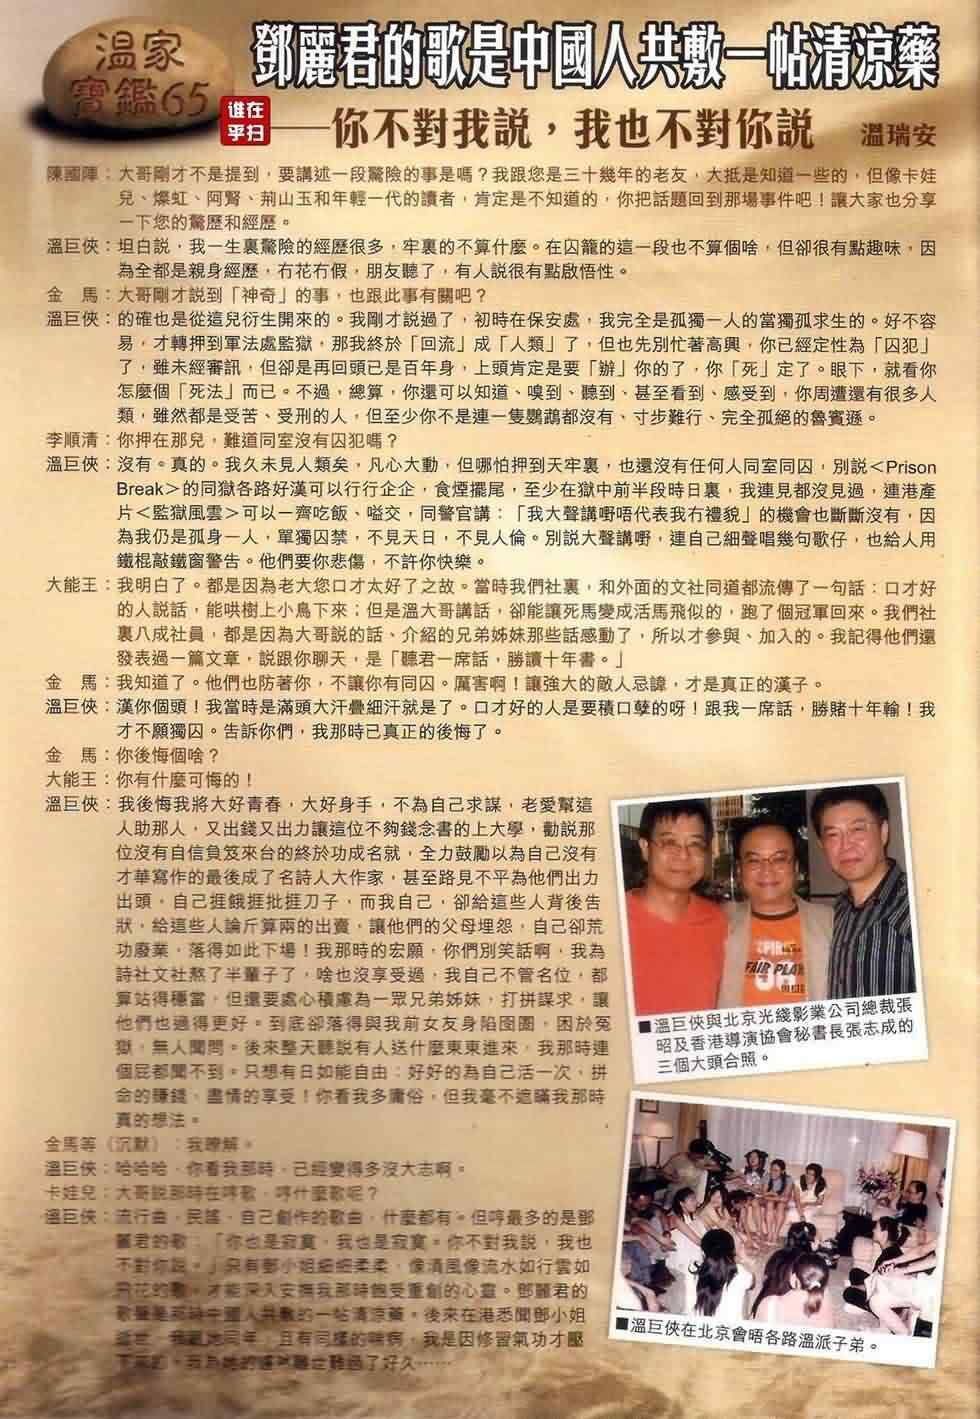 溫家
寶鑑65
鄧麗君的歌是中國人共敷一帖清涼藥
谁在
乎扫
——你不對我説，我也不對你説
溫瑞安
陳國陣：大哥剛才不是提到，要講述一段驚險的事是嗎？我跟您是三十幾年的老友，大抵是知道一些的，但像卡娃
兒、燦虹、阿腎、荊山玉和年輕一代的讀者，肯定是不知道的，你把話題回到那場事件吧！讓大家也分享
一下您的驚歷和經歷。
溫巨俠：坦白説，我一生裏驚險的經歷很多，牢裏的不算什麼。在囚籠的這一段也不算個啥，但卻很有點趣味，因
為全都是親身經歷，冇花冇假，朋友聽了，有人説很有點啟悟性。
金　馬：大哥剛才説到「神奇」的事，也跟此事有關吧？
溫巨俠：的確也是從這兒衍生開來的。我剛才説過了，初時在保安處，我完全是孤獨一人的當獨孤求生的。好不容
易，才轉押到軍法處監獄，那我終於「回流」成「人類」了，但也先別忙著高興，你已經定性為「囚犯」
了，雖未經審訊，但卻是再回頭已是百年身，上頭肯定是要「辦」你的了，你「死」定了。眼下，就看你
怎麼個「死法」而已。不過，總算，你還可以知道、嗅到、聽到、甚至看到、感受到，你周遭還有很多人
類，雖然都是受苦、受刑的人，但至少你不是連一隻鸚鵡都沒有、寸步難行、完全孤絕的魯賓遜。
李順清：你押在那兒，難道同室沒有囚犯嗎？
溫巨俠：沒有。真的。我久未見人類矣，凡心大動，但哪怕押到天牢裏，也還沒有任何人同室同囚，別説＜Prison
Break＞的同獄各路好漢可以行行企企，食煙擺尾，至少在獄中前半段時日裏，我連見都沒見過，連港產
片＜監獄風雲＞可以一齊吃飯、嗌交，同警官講：「我大聲講嘢唔代表我冇禮貌」的機會也斷斷沒有，因
為我仍是孤身一人，單獨囚禁，不見天日，不見人倫。別説大聲講嘢，連自己細聲唱幾句歌仔，也給人用
鐵棍敲鐵窗警告。他們要你悲傷，不許你快樂。
大能王：我明白了。都是因為老大您口才太好了之故。當時我們社裏，和外面的文社同道都流傳了一句話：口才好
的人説話，能哄樹上小鳥下來；但是溫大哥講話，卻能讓死馬變成活馬飛似的，跑了個冠軍回來。我們社
裏八成社員，都是因為大哥説的話、介紹的兄弟姊妹那些話感動了，所以才參與、加入的。我記得他們還
發表過一篇文章，説跟你聊天，是「聽君一席話，勝讀十年書。」
金　馬：我知道了。他們也防著你，不讓你有同囚。厲害啊！讓強大的敵人忌諱，才是真正的漢子。
溫巨俠：漢你個頭！我當時是滿頭大汗疊細汗就是了。口才好的人是要積口孽的呀！跟我一席話，勝賭十年輸！我
才不願獨囚。告訴你們，我那時已真正的後悔了。
金　馬：你後悔個啥？
大能王：你有什麼可悔的！
溫巨俠：我後悔我將大好青春，大好身手，不為自己求謀，老愛幫這
人助那人，又出錢又出力讓這位不夠錢念書的上大學，勸説那
位沒有自信負笈來台的終於功成名就，全力鼓勵以為自己沒有
才華寫作的最後成了名詩人大作家，甚至路見不平為他們出力
出頭，自己捱餓捱批捱刀子，而我自己，卻給這些人背後告
狀，給這些人論斤算兩的出賣，讓他們的父母埋怨，自己卻荒
功廢業，落得如此下場！我那時的宏願，你們別笑話啊，我為
詩社文社熬了半輩子了，啥也沒享受過，我自己不管名位，都
算站得穩當，但還要處心積慮為一眾兄弟姊妹，打拼謀求，讓
他們也過得更好。到底卻落得與我前女友身陷囹圄，困於冤
獄，無人聞問。後來整天聽説有人送什麼東東進來，我那時連
個屁都聞不到。只想有日如能自由：好好的為自己活一次，拼
命的賺錢，盡情的享受！你看我多庸俗，但我毫不遮瞞我那時
真的想法。
金馬等（沉默）：我瞭解。
溫巨俠：哈哈哈，你看我那時，已經變得多沒大志啊。
卡娃兒：大哥説那時在哼歌，哼什麼歌呢？
溫巨俠：流行曲，民謠，自己創作的歌曲，什麼都有。但哼最多的是鄧
麗君的歌：「你也是寂寞，我也是寂寞。你不對我説，我也
不對你説。」只有鄧小姐細細柔柔，像清風像流水如行雲如
飛花的歌，才能深入安撫我那時飽受重創的心靈。鄧麗君的
歌聲是那時中國人共敷的一帖清涼藥。後來在港悉聞鄧小姐
逝世，我跟她同年，且有同樣的哮病，我是因修習氣功才壓
下來的。我為她的離世難過了好久……
■溫巨俠與北京光綫影業公司總裁張
昭及香港導演協會秘書長張志成的
三個大頭合照。
■溫巨俠在北京會晤各路溫派子弟。
FAIR PLAY